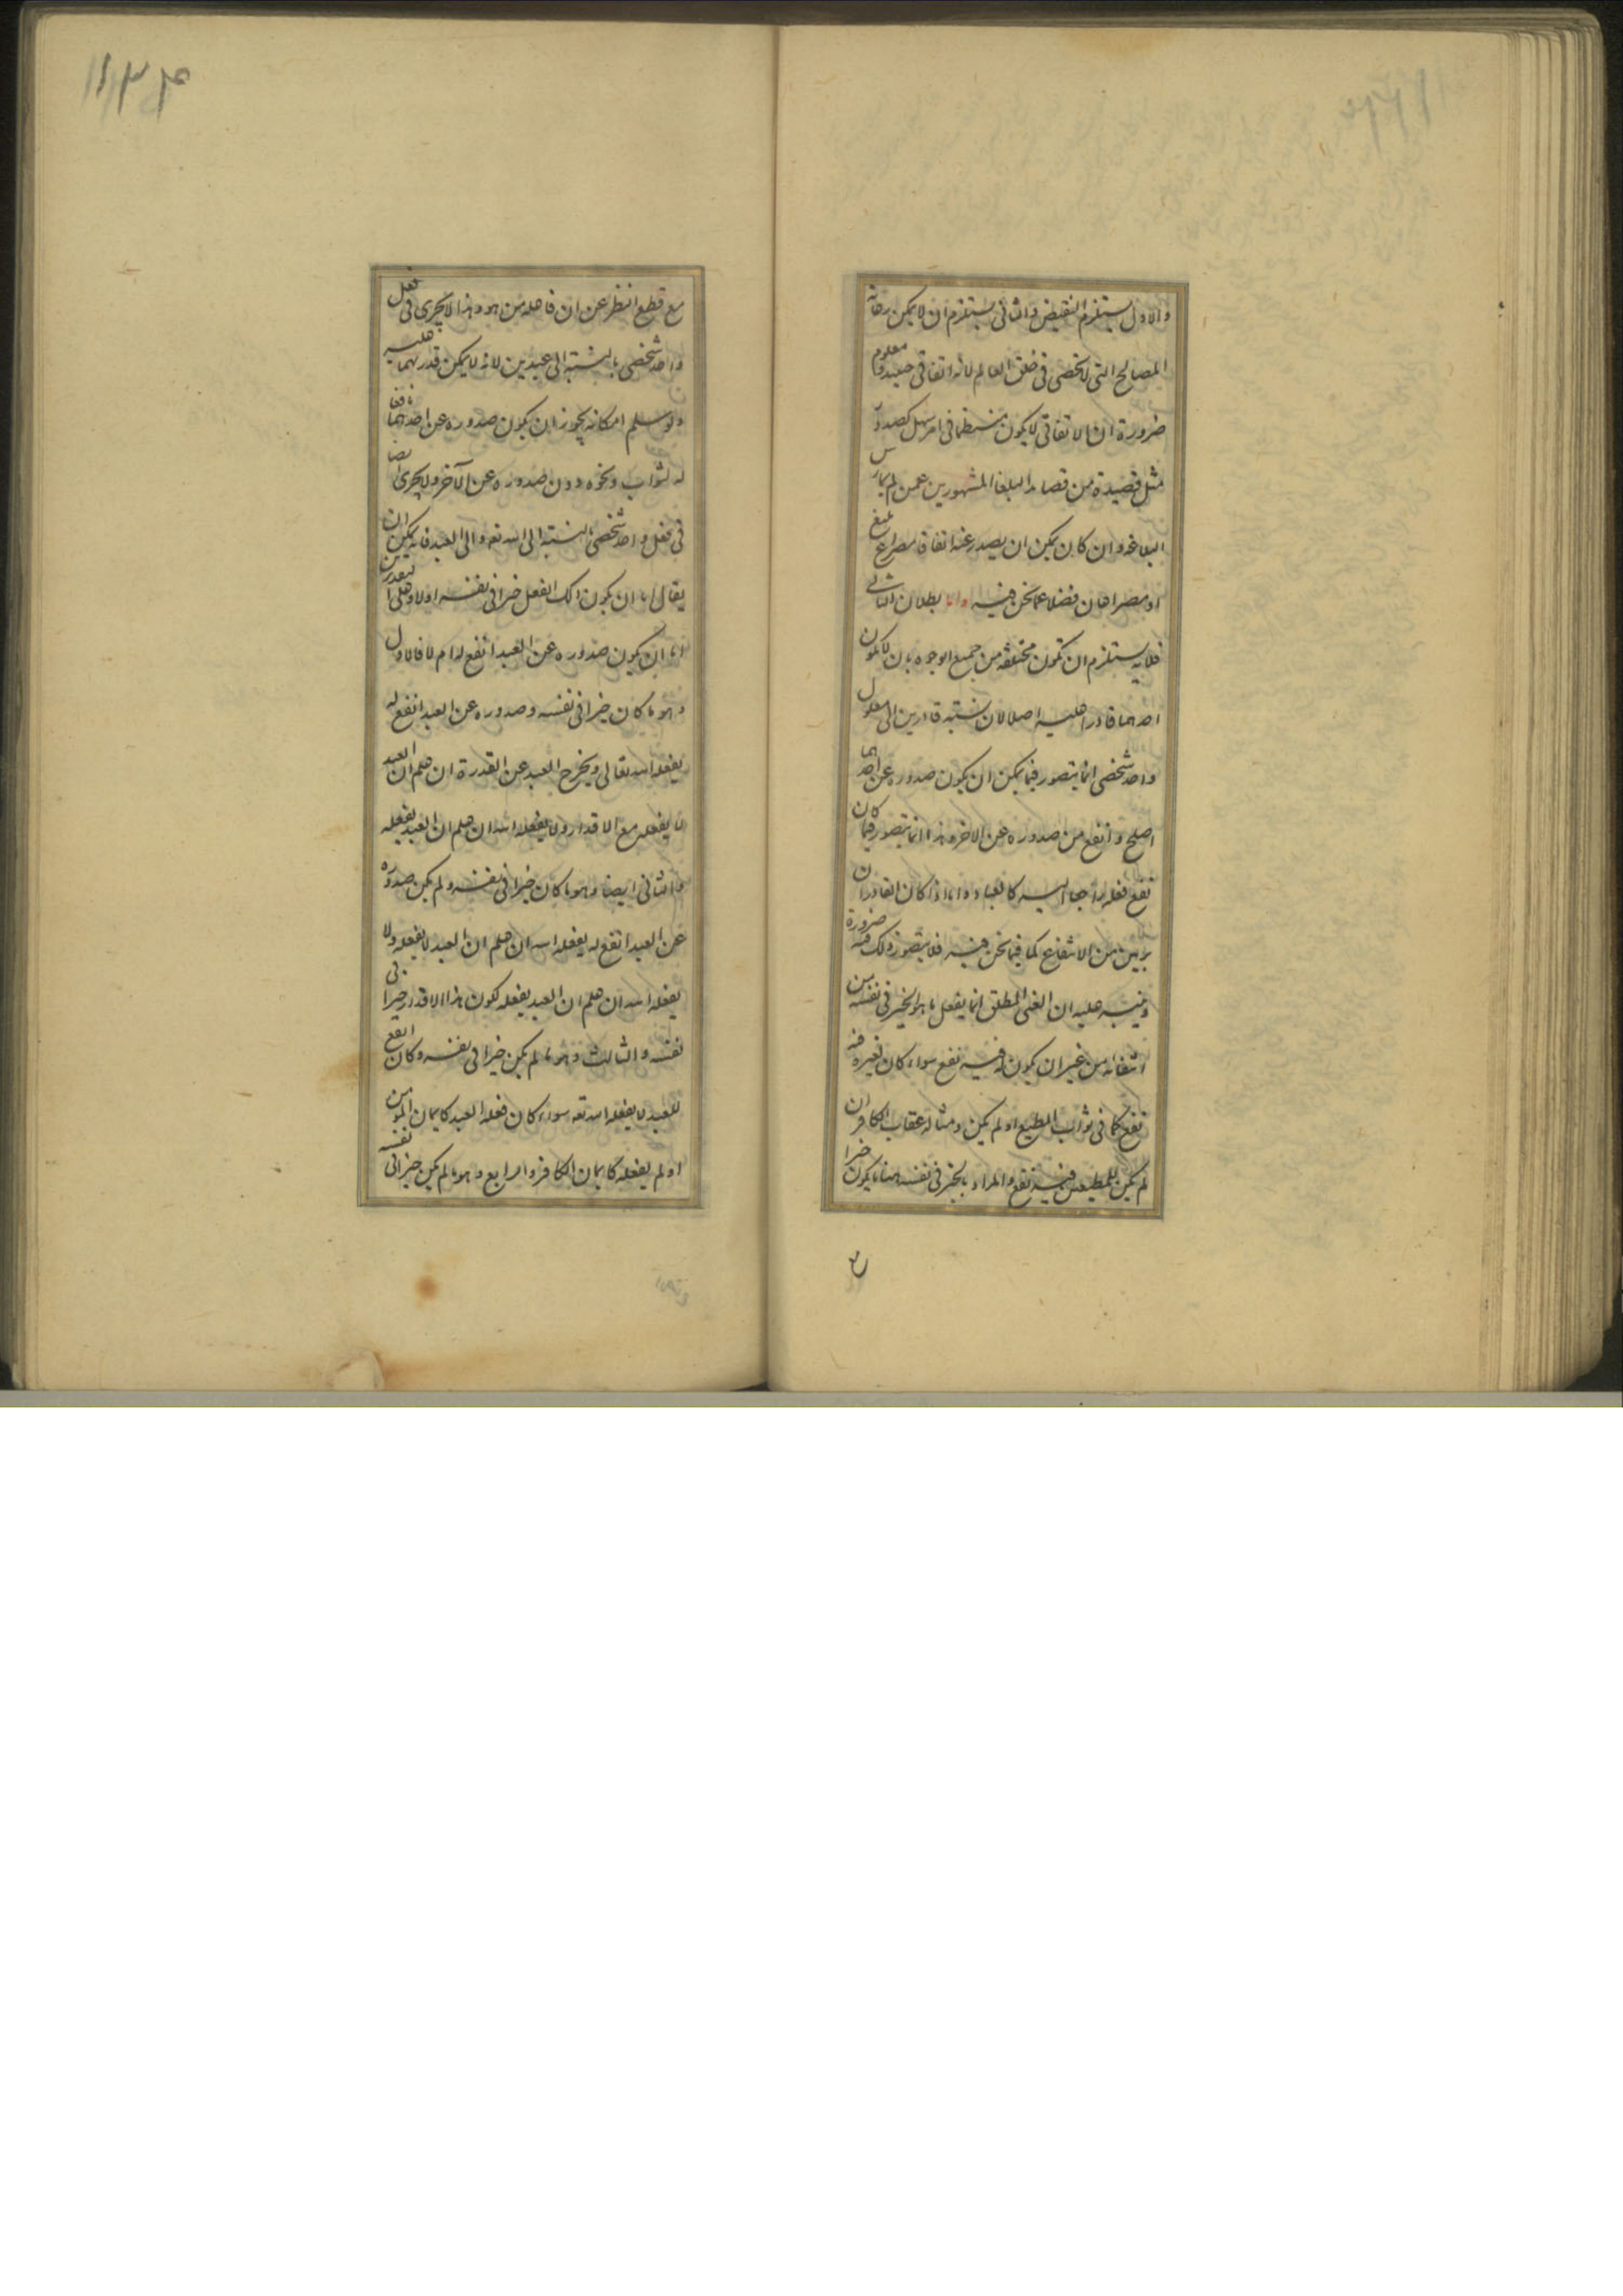 والاول يستلزم النقيض والثانى يستلزم ان لا يمكن رعاية
المصالح التى لا تحصى فى خلق العالم لانه اتفاقى حينئذ ومعلوم
ضرورة ان الاتفاقى لا يكون منتظما فى امر سهل كصدور
مثل قصيدة من قصائد البلغا المشهورين عمن لم يمارس
البلاغة وان كان يمكن ان يصدر عنه اتفاقا مصراع بليغ
او مصراعان فضلا عما نحن فيه واما بطلان التالى
فلانه يستلزم ان تكون مختلفة من جميع الوجوه بان لا يكون
احدهما قادرا عليه اصلا لان نسبة قادرين الى معلول
واحد شخصى انما يتصور فيما يمكن ان يكون صدوره عن احدهما
اصلح وانفع من صدوره عن الاخر وهذا انما يتصور فيما كان
نفع فعله راجعا اليه كالعباد واما اذا كان القادران
بريين من الانتفاع كما فيما نحن فيه فلا يتصور ذلك فيه ضرورة
وينبه عليه ان الغنى المطلق انما يفعل ما هو الخير فى نفسه من
انتفائه من غير ان يكون له فيه نفع سواء كان لغيره فيه
نفع كما فى ثواب المطيع او لم يكن ومثاله عقاب الكافر ان
لم يكن للمطيعين فيه نفع والمراد بالخير فى نفسه هنا ما يكون خيرا
١١٣۴
مع قطع النظر عن ان فاعله من هو وهذا لا يجرى فى فعل
واحد شخصى بالنسبة الى عبدين لانه لا يمكن قدرتهما عليه
ولو سلم امكانه يجوز ان يكون صدوره عن احدهما نافعا
له لثواب ونحوه دون صدوره عن الآخر ولا يجرى ايضا
فى فعل واحد شخصى بالنسبة الى الله تعه والى العبد فانه يمكن ان
يقال اما ان يكون ذلك الفعل خيرا فى نفسه او لا وعلى التقديرين
اما ان يكون صدوره عن العبد انفع له ام لا فالاول
وهو ما كان خيرا فى نفسه وصدوره عن العبد انفع له
يفعله الله تعالى ويخرج العبد عن القدرة ان علم ان العبد
لا يفعله مع الاقدار ولا يفعله الله ان علم ان العبد يفعله
والثانى ايضا وهو ما كان خيرا فى نفسه ولم يكن صدوره
عن العبد انفع له يفعله الله ان علم ان العبد لا يفعله ولا
يفعله الله ان علم ان العبد يفعله لكون هذا الاقدار خيرا فى
نفسه والثالث وهو ما لم يكن خيرا فى نفسه وكان انفع
للعبد لا يفعله الله تعه سواء كان فعله العبد كايمان المؤمن
او لم يفعله كايمان الكافر والرابع وهو ما لم يكن خيرا فى نفسه